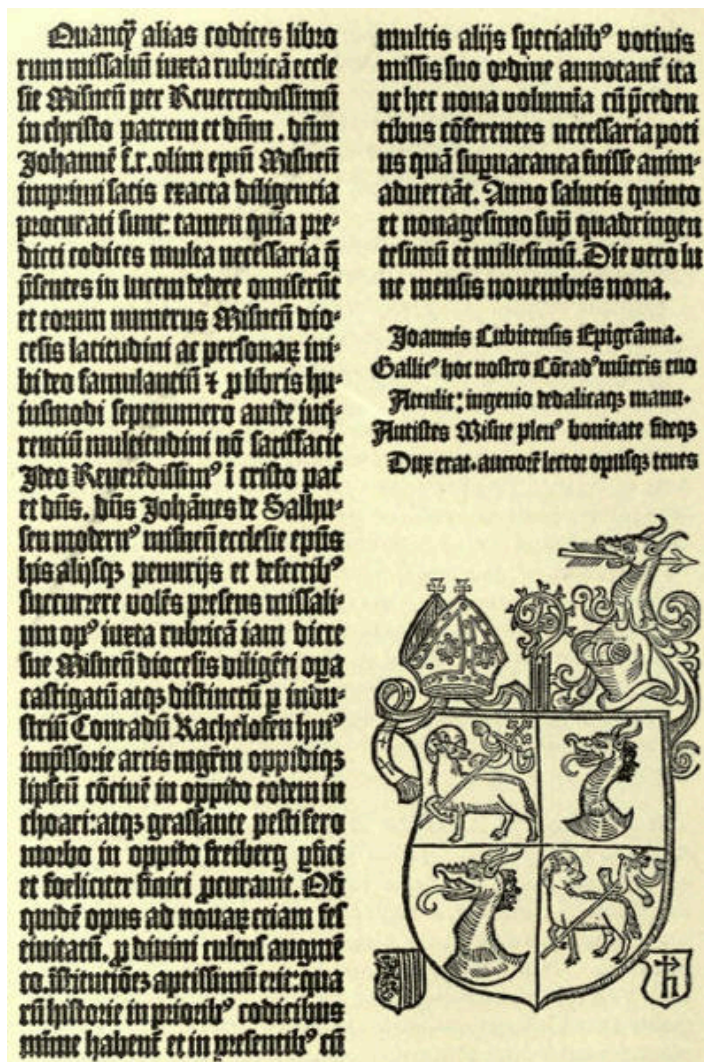 Quanq̃ alias codices libro
rum missaliũ iuxta rubricã eccle
sie Misneñ per Reuerendissimũ
in christo patrem et dñm . dñm
Johannẽ f.r. olim epiũ Misneñ
imprimi satis exacta diligentia
procurati sunt: tamen quia pre⸗
dicti codices multa necessaria q̃
p̃sentes in lucem dedere omiserũt
et eorum numerus Misneñ dio⸗
cesis latitudini ac personaꝝ ini⸗
bi deo famulantiũ ⁊ ꝓ libris hu⸗
iusmodi sepenumero auide inq̃⸗
rentiũ multitudini nõ satisfacit
Ideo Reuerẽdissimꝰ ĩ cristo pat̃
et dñs. dñs Johãnes de Salhu⸗
sen modernꝰ misneñ ecclesie ep̃us
his alijsqꝫ penurijs et defectibꝰ
succurrere volẽs presens missali⸗
um opꝰ iuxta rubricã iam dicte
sue Misneñ diocesis diligẽti oꝑa
castigatũ atqꝫ distinctũ ꝑ indu⸗
striũ Conradũ Kachelofen huiꝰ
imp̃ssorie artis mgr̃m oppidiqꝫ
lipseñ cõciuẽ in oppido eodem in
choari: atqꝫ grassante pestifero
morbo in oppido freiberg ꝑfici
et foeliciter finiri ꝓcurauit. Ob
quidẽ opus ad nouaꝝ etiam fes
tiuitatũ. ꝓ diuini cultus augmẽ
to. ĩstitutiões aptissimũ erit: qua
rũ historie in prioribꝰ codicibus
mĩme habent̃ et in presentibꝰ cũ
multis alijs specialibꝰ votiuis
missis suo ordine annotant̃ ita
vt hec noua volumĩa cũ p̃ceden
tibus cõferentes necessaria poti
us quã suꝑuacanea fuisse anim⸗
aduertãt. Anno salutis quinto
et nonagesimo sup̃ quadringen
tesimũ et millesimũ. Die vero lu
ne mensis nouembris nona.
Joannis Cubitensis Epigrãma.
Gallicꝰ hoc nostro Cõradꝰ mũeris euo
Attulit: ingenio dedalicaqꝫ manu.
Antistes Misne plenꝰ bonitate fideqꝫ
Dux erat. auctorẽ lector opusqꝫ tenes